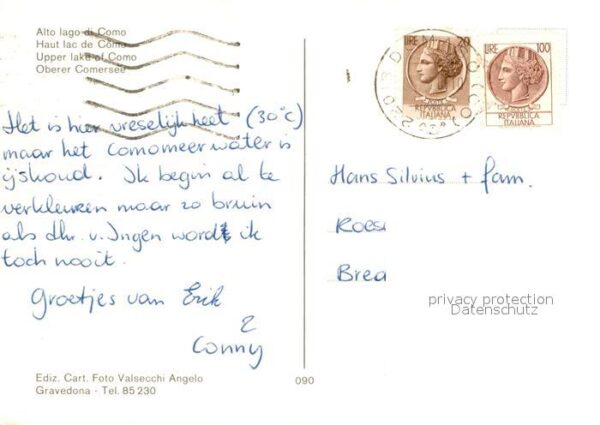 Alto lago di Como
Haut lac de Como
Upper lake of Como
Oberer Comersee
LIRE
LIRE 100
REPVBBLICA
ITALIANA
REPVBBLICA
ITALIANA
Het is hier vreselijk heet (30°C)
maar het Comomeerwater is
ijskoud. Ik begin al te
verkleuren maar zo bruin
als dhr. v. Ingen wordt ik
toch nooit.
Groetjes van Erik
&
Conny
Hans Silvius + fam.
Roes
Brea
privacy protection
Datenschutz
Ediz. Cart. Foto Valsecchi Angelo
Gravedona - Tel. 85 230
090